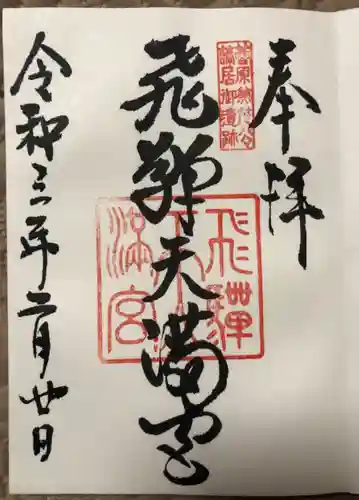 奉拝
菅原兼茂公
謫居御遺跡
飛騨天満宮
飛騨
天
満宮
令和三年二月廿日